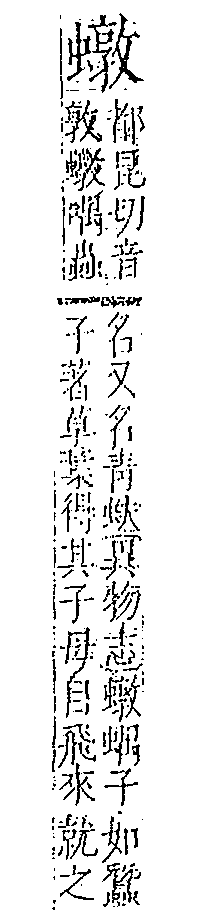 𧑒
都昆切音
敦𧑒蝸蟲
名又名青蚨異物志𧑒蝸子如蠶
子著草葉得其子母自飛來就之